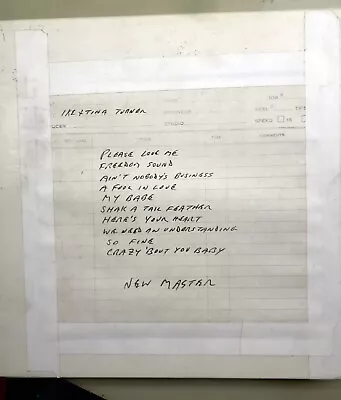 IKE & TINA TURNER
STUDIO
COMMENTS
PLEASE LOVE ME
FREEDOM SOUND
AIN'T NOBODY'S BUSINESS
A FOOL IN LOVE
MY BABE
SHAK A TAIL FEATHER
HERE'S YOUR HEART
WE NEED AN UNDERSTANDING
SO FINE
CRAZY 'BOUT YOU BABY
NEW MASTER